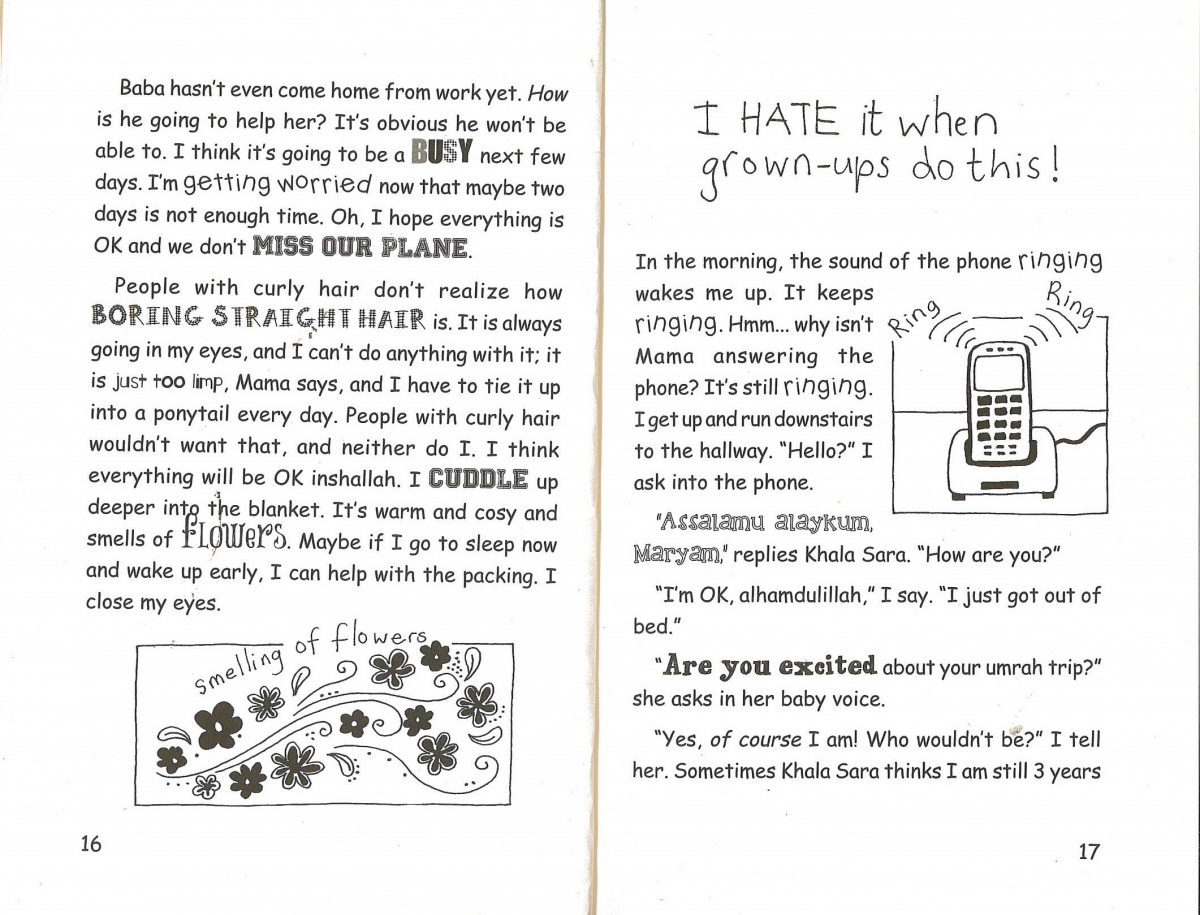 Baba hasn't even come home from work yet. How
is he going to help her? It's obvious he won't be
able to. I think it's going to be a BUSY next few
days. I'm getting worried now that maybe two
days is not enough time. Oh, I hope everything is
OK and we don't MISS OUR PLANE.
People with curly hair don't realize how
BORING STRAIGHT HAIR is. It is always
going in my eyes, and I can't do anything with it; it
is just too limp, Mama says, and I have to tie it up
into a ponytail every day. People with curly hair
wouldn't want that, and neither do I. I think
everything will be OK inshallah. I CUDDLE up
deeper into the blanket. It's warm and cosy and
smells of flowers. Maybe if I go to sleep now
and wake up early, I can help with the packing. I
close my eyes.
smelling of flowers
16
I HATE it when
grown-ups do this!
In the morning, the sound of the phone ringing
wakes me up. It keeps
ringing. Hmm... why isn't
Mama answering the
phone? It's still ringing.
I get up and run downstairs
to the hallway. "Hello?" I
ask into the phone.
Ring
Ring
"Assalamu alaykum,
Maryam," replies Khala Sara. "How are you?"
"I'm OK, alhamdulillah," I say. "I just got out of
bed."
"Are you excited about your umrah trip?"
she asks in her baby voice.
"Yes, of course I am! Who wouldn't be?" I tell
her. Sometimes Khala Sara thinks I am still 3 years
17